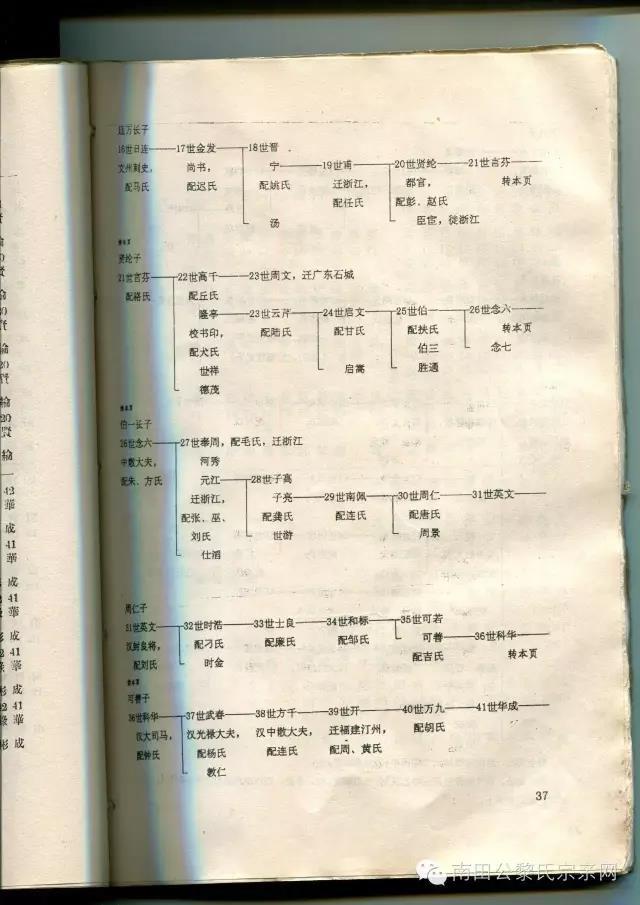 廷万长子
16世日连 17世金发 18世晋
交州刺史, 尚书, 宁 19世甫 20世贤纶 21世言芬
配马氏 配迟氏 配姚氏 迁浙江, 都官, 转本页
配任氏 配彭、赵氏
汤 臣宦,徙浙江
接本页
贤纶子
21世言芬 22世高千 23世周文,迁广东石城
配褚氏 配丘氏
隆亭 23世云芹 24世启文 25世伯一 26世念六
校书印, 配陆氏 配甘氏 配扶氏 转本页
配犬氏 伯三 念七
世祥 启嵩 胜通
德茂
接本页
伯一长子
26世念六 27世奉周,配毛氏,迁浙江
中散大夫, 河秀
配朱、方氏 元江 28世子高
迁浙江, 子亮 29世南佩 30世周仁 31世英文
配张、巫、 配龚氏 配连氏 配唐氏
刘氏 世游 周景
仕滔
周仁子
31世英文 32世时浩 33世士良 34世和标 35世可若
汉射良将, 配刁氏 配廉氏 配邹氏 可善 36世科华
配刘氏 时金 配吉氏 转本页
接本页
可善子
36世科华 37世武春 38世方千 39世开 40世万九 41世华成
汉大司马, 汉光禄大夫, 汉中散大夫, 迁福建汀州, 配胡氏
配钟氏 配杨氏 配连氏 配周、黄氏
敦仁
37
南田公黎氏宗亲网